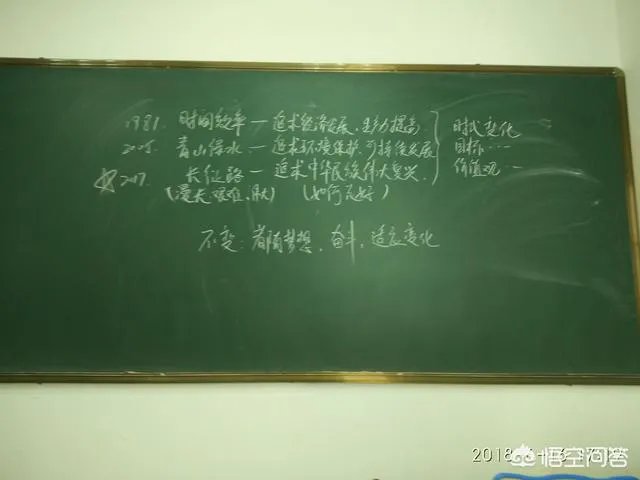 1981. 时间效率—追求经济发展,生产力提高 时代变化
2005. 青山绿水—追求环境保护,可持续发展 目标…
2017. 长征路—追求中华民族伟大复兴. 价值观…
(漫长艰难, ) (如何走好)
不变:都有梦想,奋斗,适应变化
2018
悟空问答